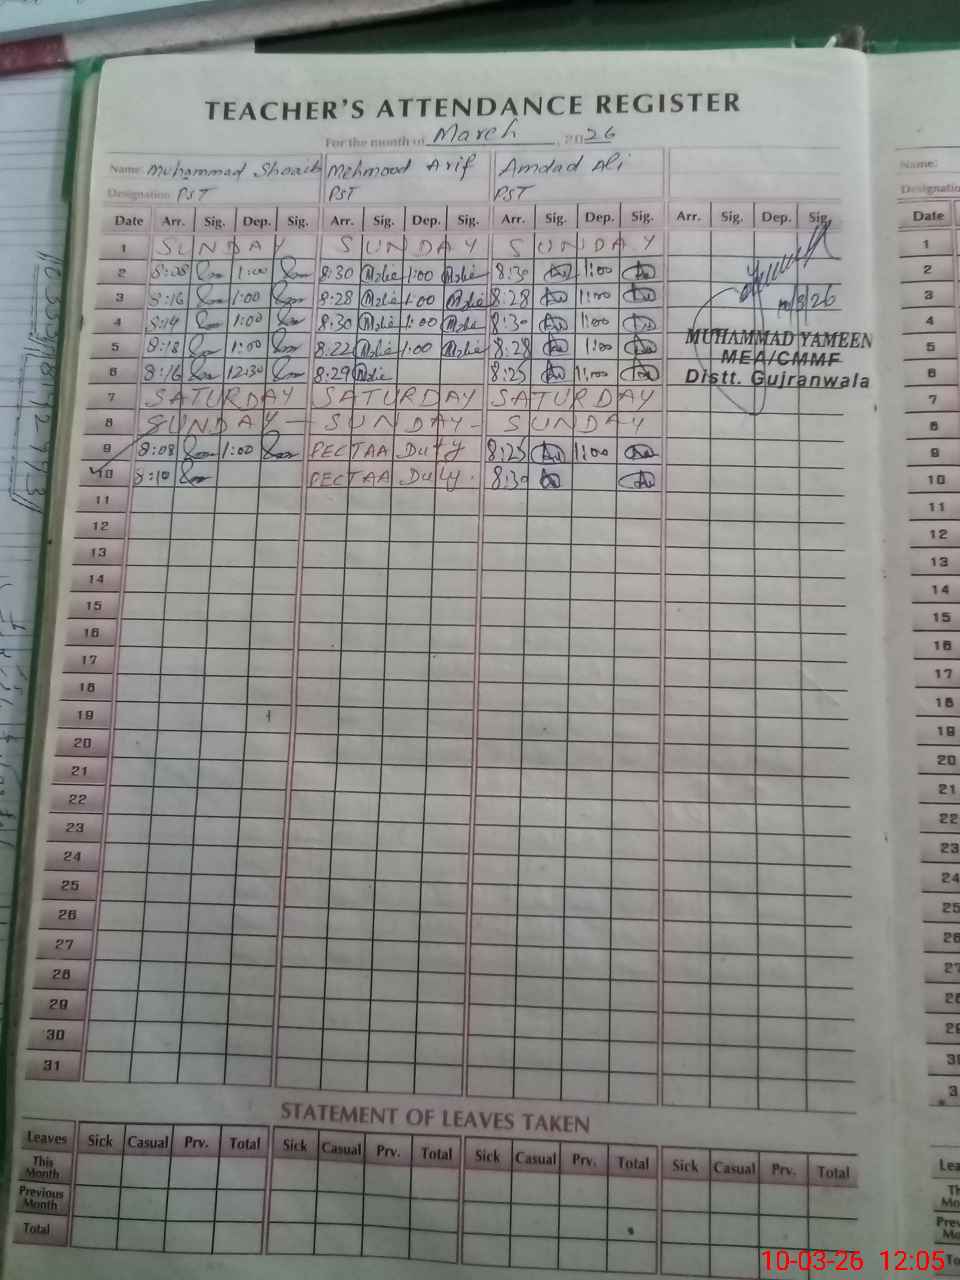 TEACHER'S ATTENDANCE REGISTER
For the month of March, 2026
Name: Muhammad Shoaib Mehmood Arif Amdad Ali
Designation PST PST PST
Date Arr. Sig. Dep. Sig. Arr. Sig. Dep. Sig. Arr. Sig. Dep. Sig. Arr. Sig. Dep. Sig.
1 SUNDAY SUNDAY SUNDAY
2 8:08 1:00 8:30 1:00 8:30 1:00
3 8:16 1:00 8:28 1:00 8:28 1:00
4 8:14 1:00 8:30 1:00 8:30 1:00
5 8:18 1:00 8:22 1:00 8:28 1:00
6 8:16 12:30 8:29 8:25 11:00
7 SATURDAY SATURDAY SATURDAY
8 SUNDAY - SUNDAY - SUNDAY
9 8:08 1:00 PECTAA Duty 8:25 1:00
10 8:10 PECTAA Duty. 8:30
11
12
13
14
15
16
17
18
19
20
21
22
23
24
25
26
27
28
29
30
31
10/3/26
MUHAMMAD YAMEEN
MEA/CMMF
Distt. Gujranwala
STATEMENT OF LEAVES TAKEN
Leaves Sick Casual Prv. Total Sick Casual Prv. Total Sick Casual Prv. Total Sick Casual Prv. Total
This Month
Previous Month
Total
Name:
Date
1
2
3
4
5
6
7
8
9
10
11
12
13
14
15
16
17
18
19
20
21
22
23
24
10-03-26 12:05